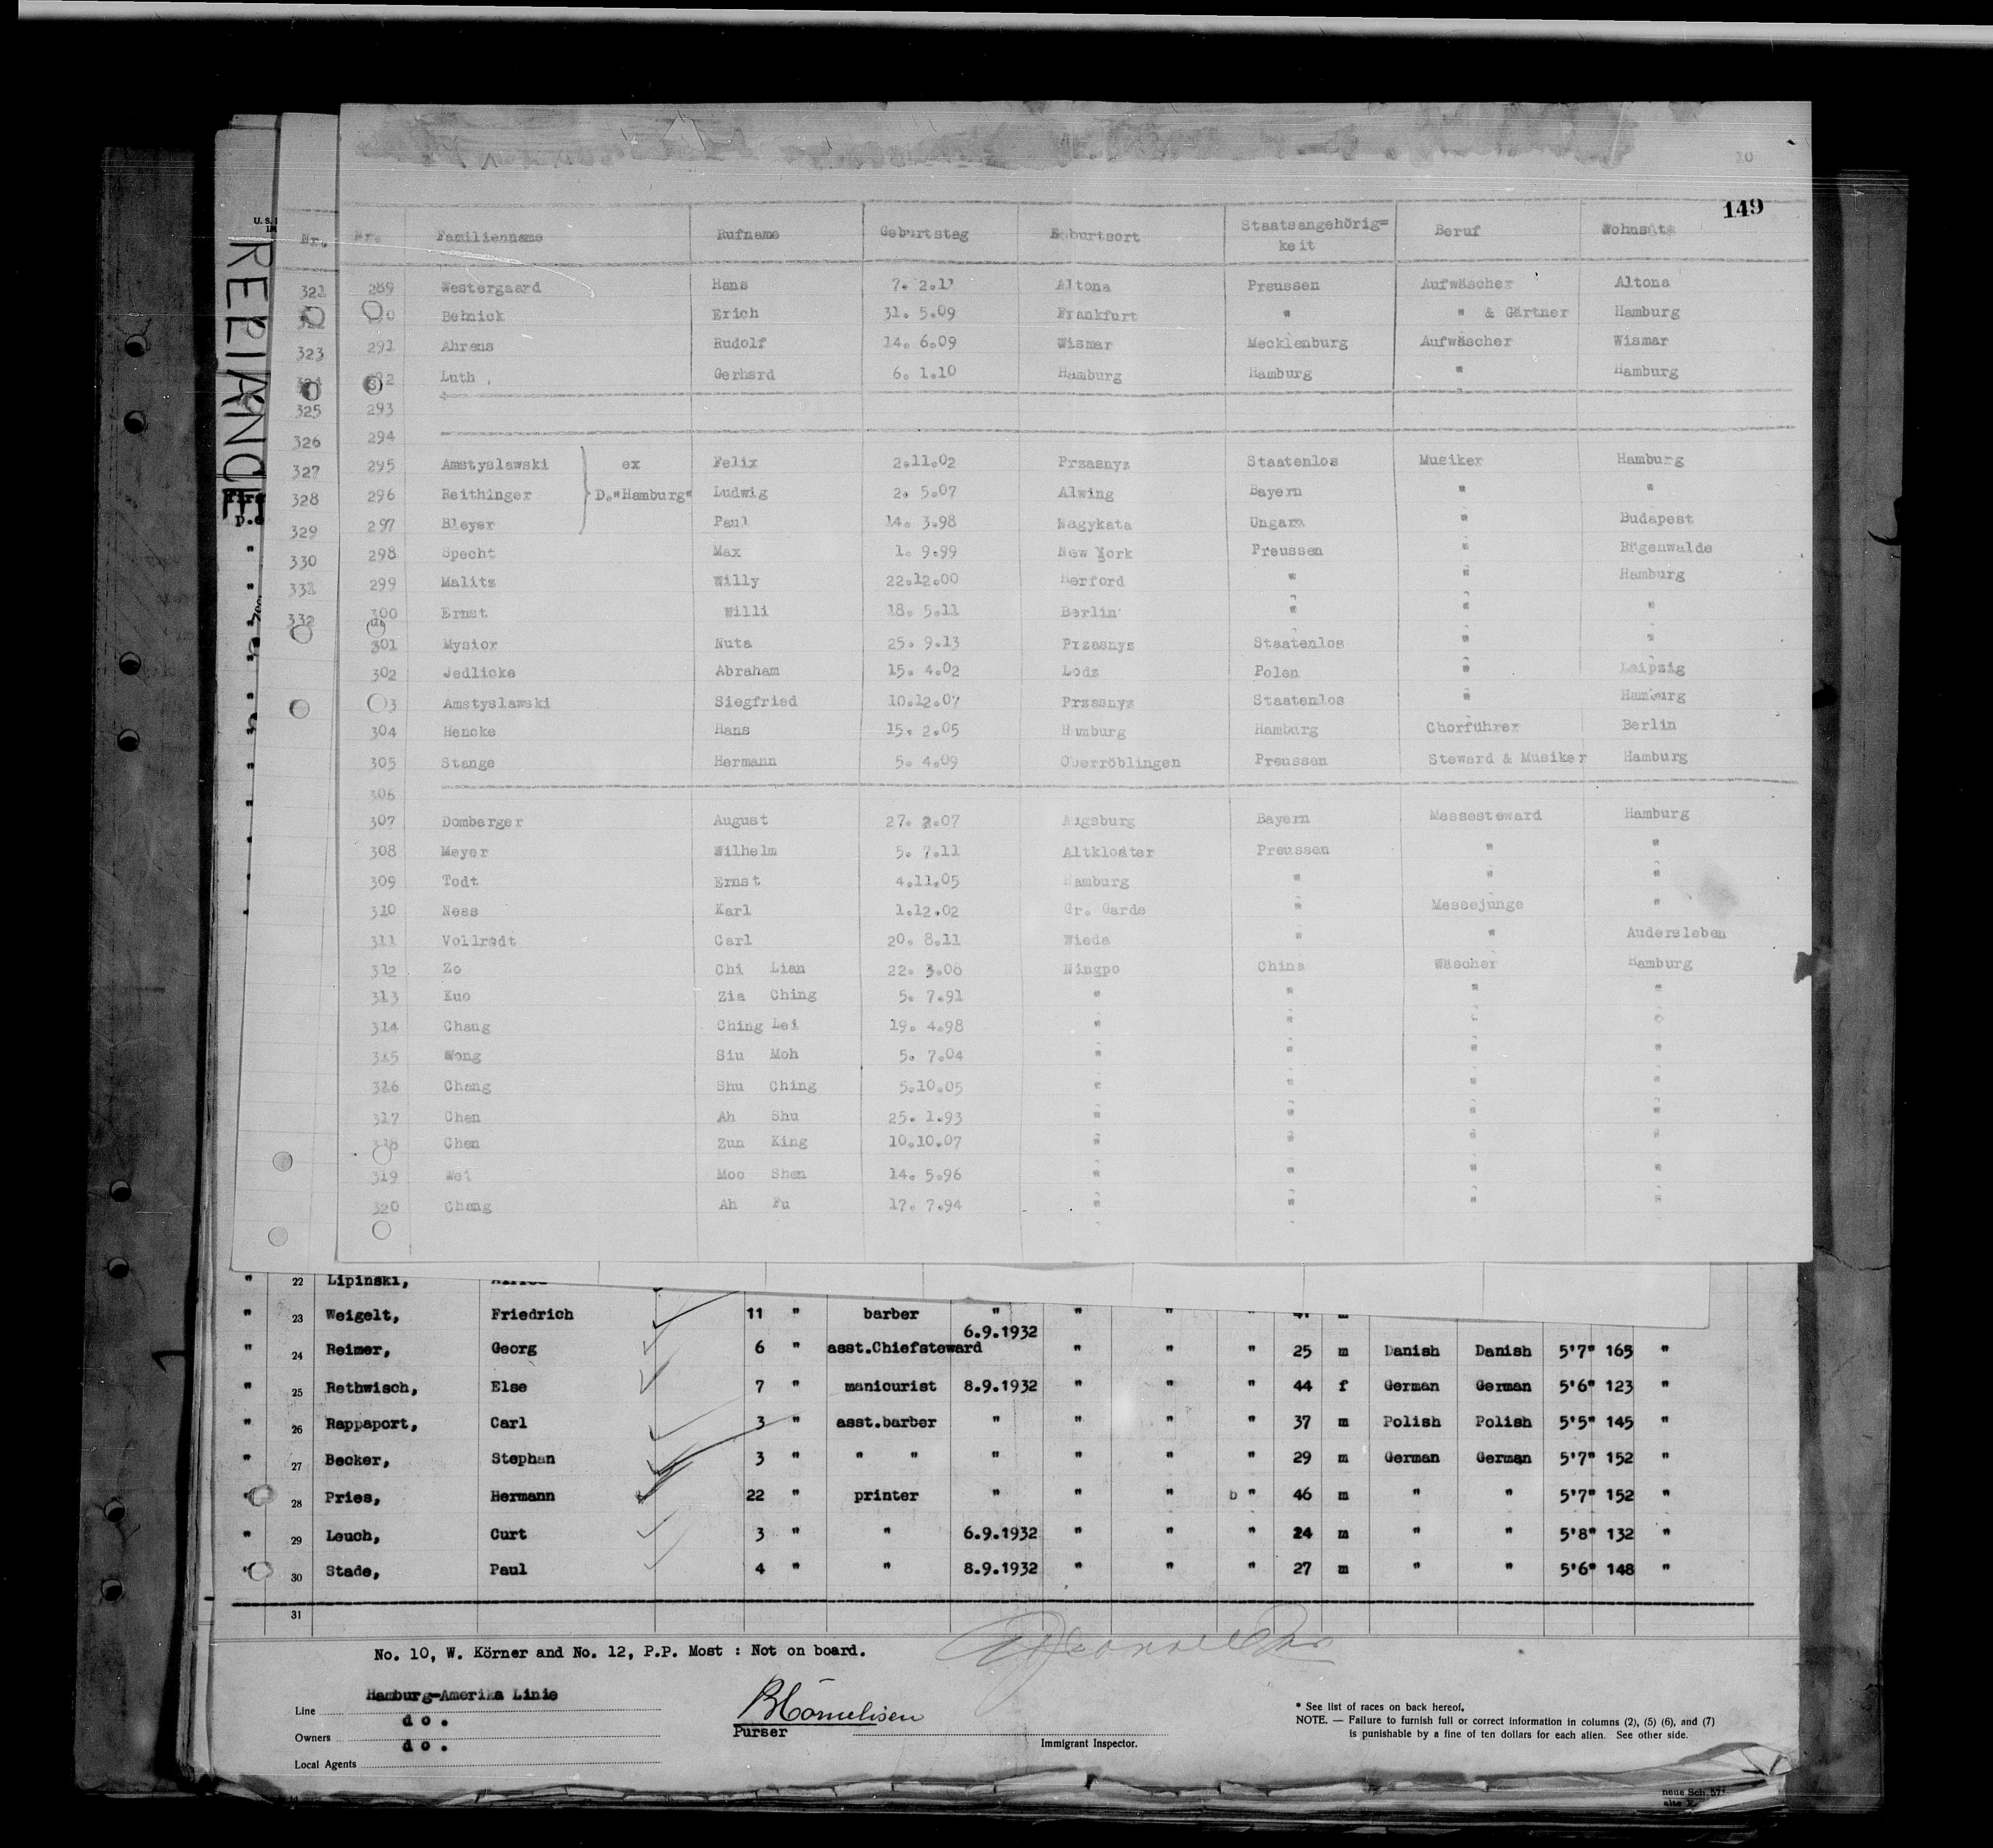 10
149
U. S.
RELIANC
Nr. Nr. Familienname Rufname Geburtstag Geburtsort Staatsangehörig= Beruf Wohnsitz
keit
321 289 Westergaard Hans 7. 2.11 Altona Preussen Aufwäscher Altona
Behnick Erich 31. 5.09 Frankfurt " " & Gärtner Hamburg
323 291 Ahrens Rudolf 14. 6.09 Wismar Mecklenburg Aufwäscher Wismar
Luth Gerhard 6. 1.10 Hamburg Hamburg " Hamburg
325 293
326 294
327 295 Amstyslawski ex Felix 2.11.02 Przasnyz Staatenlos Musiker Hamburg
328 296 Reithinger D."Hamburg" Ludwig 2. 5.07 Alwing Bayern " "
329 297 Bleyer Paul 14. 3.98 Nagykata Ungarn " Budapest
330 298 Specht Max 1. 9.99 New York Preussen " Rügenwalde
331 299 Malitz Willy 22.12.00 Herford " " Hamburg
332 300 Ernst Willi 18. 5.11 Berlin " " "
301 Mysior Nuta 25. 9.13 Przasnyz Staatenlos " "
302 Jedlicke Abraham 15. 4.02 Lodz Polen " Leipzig
3 Amstyslawski Siegfried 10.12.07 Przasnyz Staatenlos " Hamburg
304 Hencke Hans 15. 2.05 Hamburg Hamburg Chorführer Berlin
305 Stange Hermann 5. 4.09 Oberröblingen Preussen Steward & Musiker Hamburg
306
307 Domberger August 27. 2.07 Augsburg Bayern Messesteward Hamburg
308 Meyer Wilhelm 5. 7.11 Altkloster Preussen " "
309 Todt Ernst 4.11.05 Hamburg " " "
310 Ness Karl 1.12.02 Gr. Garde " Messejunge "
311 Vollradt Carl 20. 8.11 Wieda " " Audersleben
312 Zo Chi Lian 22. 3.08 Ningpo China Wäscher Hamburg
313 Kuo Zia Ching 5. 7.91 " " " "
314 Chang Ching Lei 19. 4.98 " " " "
315 Wong Siu Moh 5. 7.04 " " " "
316 Chang Shu Ching 5.10.05 " " " "
317 Chen Ah Shu 25. 1.93 " " " "
318 Chen Zun King 10.10.07 " " " "
319 Wei Moo Shen 14. 5.96 " " " "
320 Chang Ah Fu 17. 7.94 " " " "
" 22 Lipinski,
" 23 Weigelt, Friedrich 11 " barber " " " "
" 24 Reimer, Georg 6 " asst.Chiefsteward 6.9.1932 " " " 25 m Danish Danish 5'7" 165 "
" 25 Rethwisch, Else 7 " manicurist 8.9.1932 " " " 44 f German German 5'6" 123 "
" 26 Rappaport, Carl 3 " asst.barber " " " " 37 m Polish Polish 5'5" 145 "
" 27 Becker, Stephan 3 " " " " " " " 29 m German German 5'7" 152 "
" 28 Pries, Hermann 22 " printer " " " b " 46 m " " 5'7" 152 "
" 29 Leuch, Curt 3 " " 6.9.1932 " " " 24 m " " 5'8" 132 "
" 30 Stade, Paul 4 " " 8.9.1932 " " " 27 m " " 5'6" 148 "
31
No. 10, W. Körner and No. 12, P.P. Most : Not on board.
Line Hamburg-Amerika Linie
Owners do.
Local Agents do.
BCornelisen
Purser
Immigrant Inspector.
* See list of races on back hereof.
NOTE. — Failure to furnish full or correct information in columns (2), (5) (6), and (7)
is punishable by a fine of ten dollars for each alien. See other side.
neue Sch.57